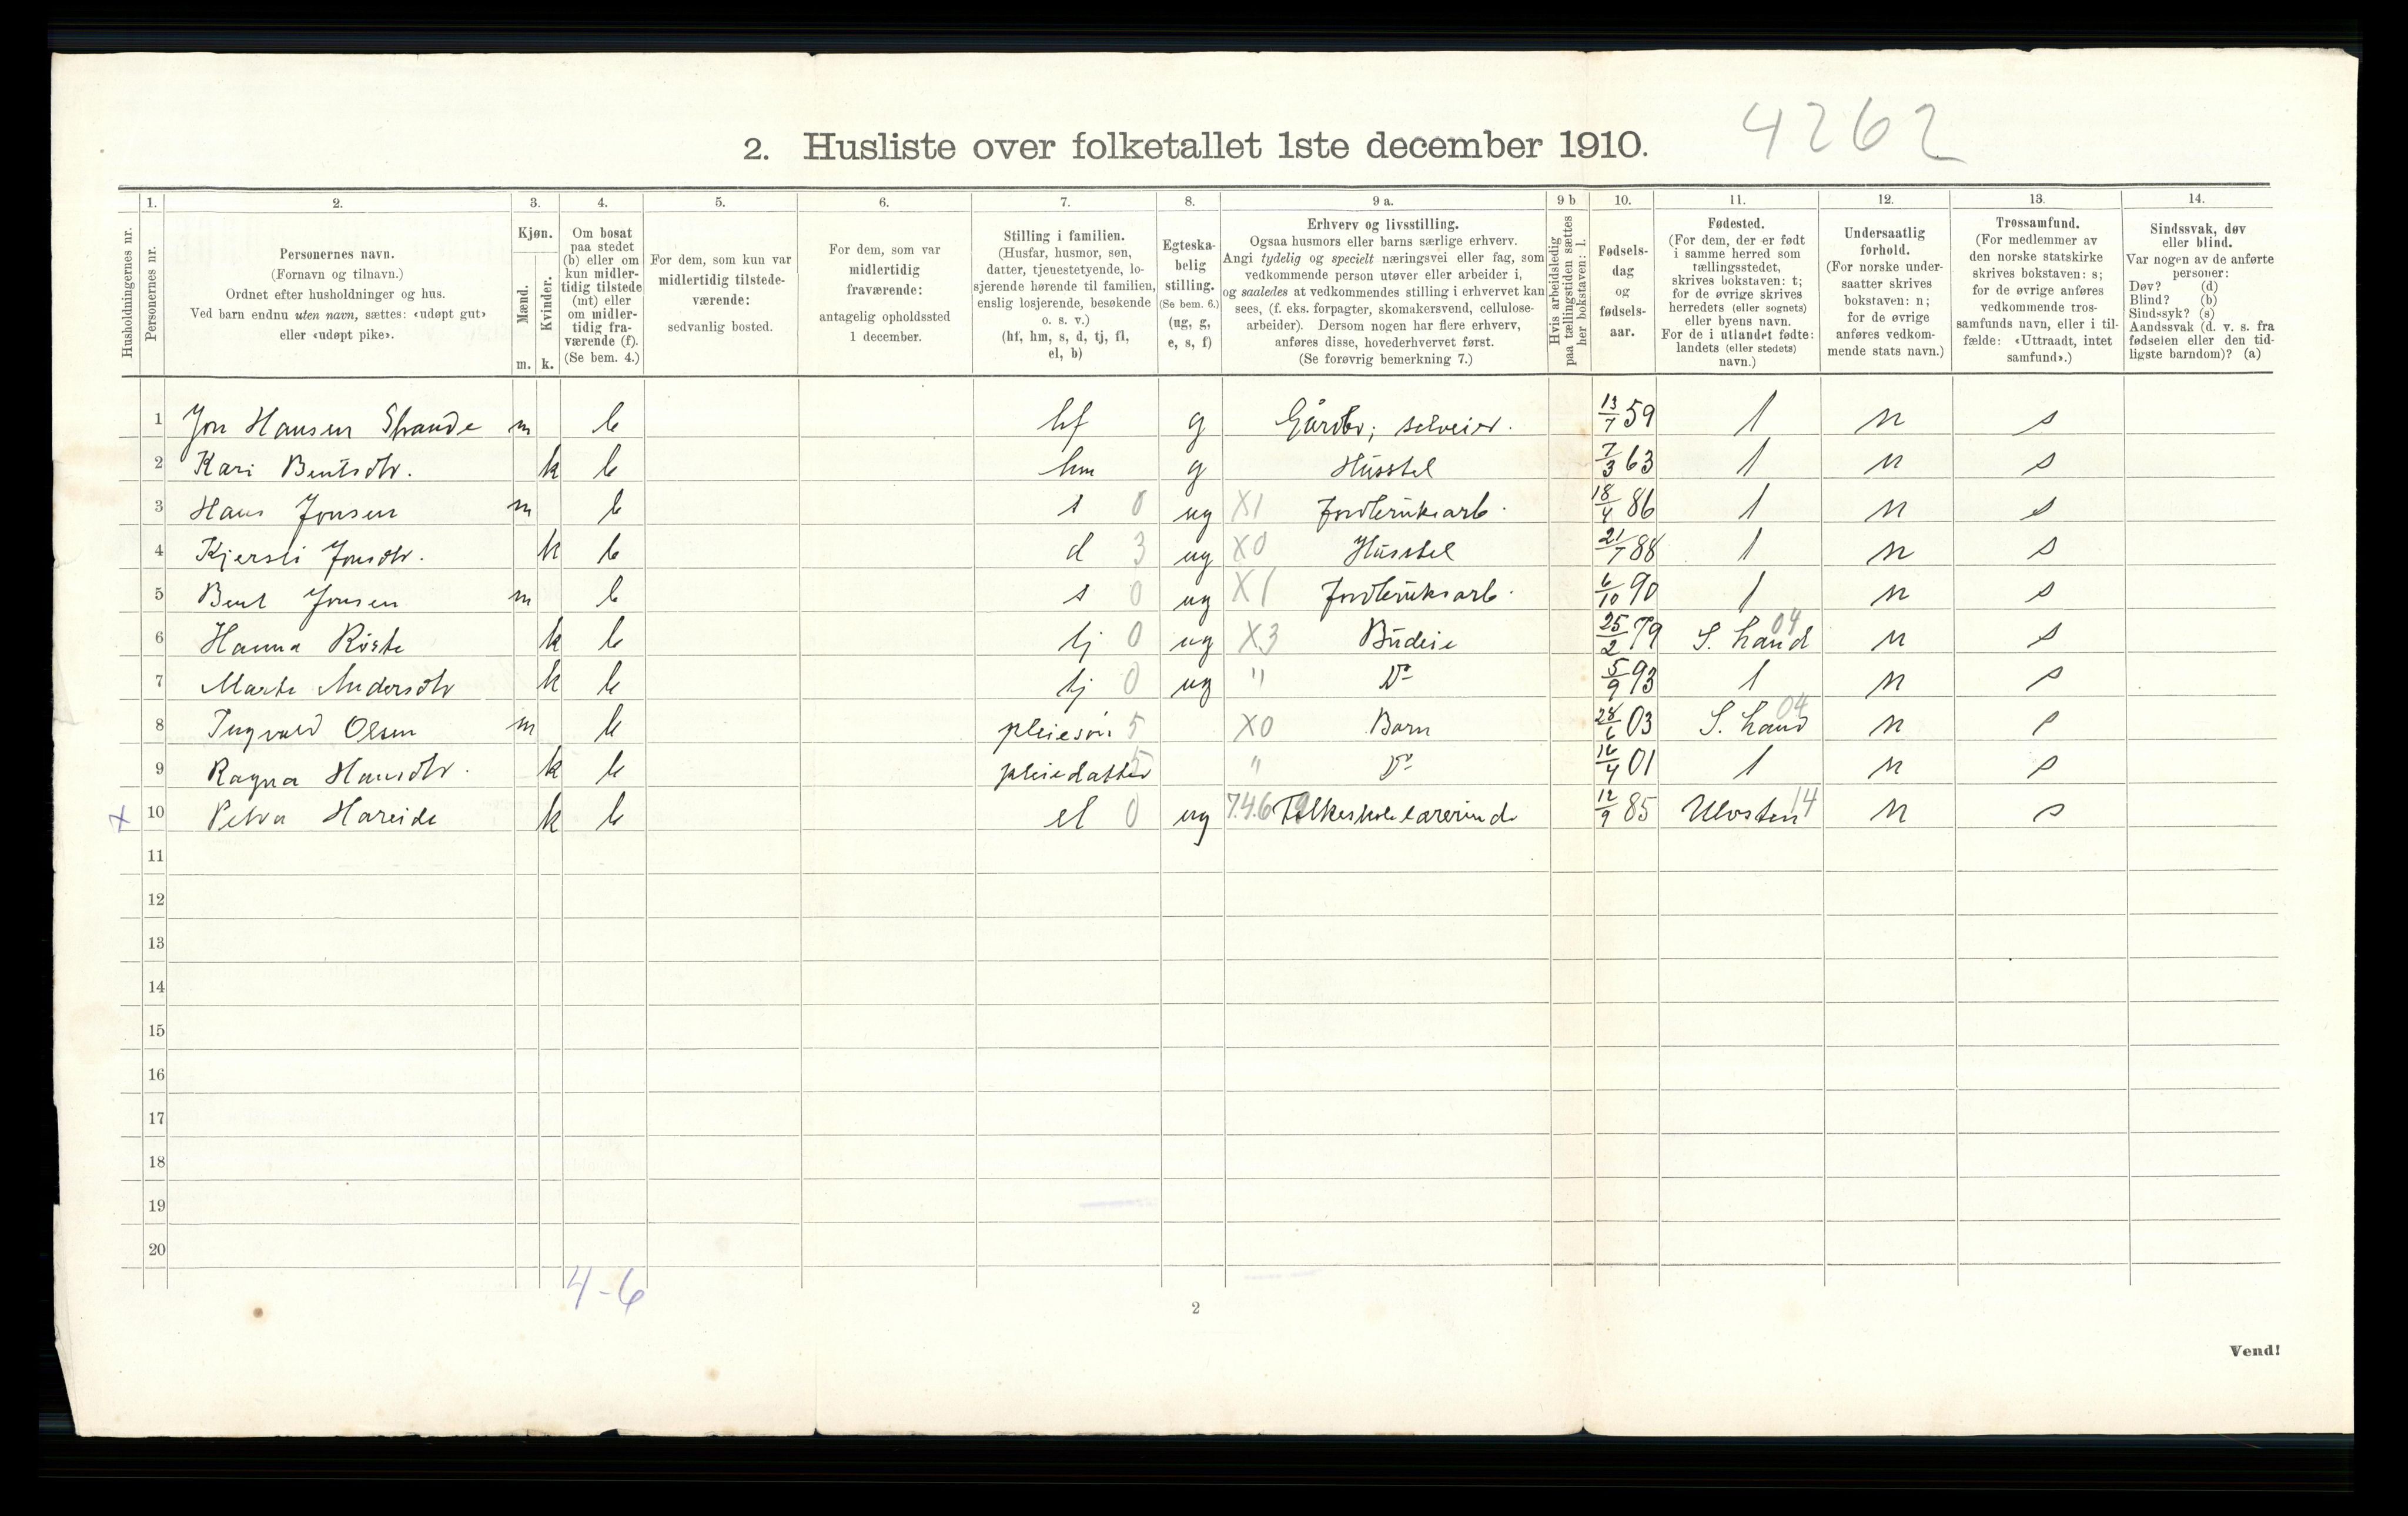 4262
2. Husliste over folketallet 1ste december 1910.
1. 2. 3. 4. 5. 6. 7. 8. 9 a. 9 b 10. 11. 12. 13. 14.
Husholdningernes nr.
Personernes nr.
Personernes navn.
(Fornavn og tilnavn.)
Ordnet efter husholdninger og hus.
Ved barn endnu uten navn, sættes: «udøpt gut»
eller «udøpt pike».
Kjøn.
Mænd.
Kvinder.
m. k.
Om bosat
paa stedet
(b) eller om
kun midler-
tidig tilstede
(mt) eller
om midler-
tidig fra-
værende (f).
(Se bem. 4.)
For dem, som kun var
midlertidig tilstede-
værende:
sedvanlig bosted.
For dem, som var
midlertidig
fraværende:
antagelig opholdssted
1 december.
Stilling i familien.
(Husfar, husmor, søn,
datter, tjenestetyende, lo-
sjerende hørende til familien,
enslig losjerende, besøkende
o. s. v.)
(hf, hm, s, d, tj, fl,
el, b)
Egteska-
belig
stilling.
(Se bem. 6.)
(ug, g,
e, s, f)
Erhverv og livsstilling.
Ogsaa husmors eller barns særlige erhverv.
Angi tydelig og specielt næringsvei eller fag, som
vedkommende person utøver eller arbeider i,
og saaledes at vedkommendes stilling i erhvervet kan
sees, (f. eks. forpagter, skomakersvend, cellulose-
arbeider). Dersom nogen har flere erhverv,
anføres disse, hovederhvervet først.
(Se forøvrig bemerkning 7.)
Hvis arbeidsledig
paa tællingstiden sættes
her bokstaven: l.
Fødsels-
dag
og
fødsels-
aar.
Fødested.
(For dem, der er født
i samme herred som
tællingsstedet,
skrives bokstaven: t;
for de øvrige skrives
herredets (eller sognets)
eller byens navn.
For de i utlandet fødte:
landets (eller stedets)
navn.)
Undersaatlig
forhold.
(For norske under-
saatter skrives
bokstaven: n;
for de øvrige
anføres vedkom-
mende stats navn.)
Trossamfund.
(For medlemmer av
den norske statskirke
skrives bokstaven: s;
for de øvrige anføres
vedkommende tros-
samfunds navn, eller i til-
fælde: «Uttraadt, intet
samfund».)
Sindssvak, døv
eller blind.
Var nogen av de anførte
personer:
Døv? (d)
Blind? (b)
Sindssyk? (s)
Aandssvak (d. v. s. fra
fødselen eller den tid-
ligste barndom)? (a)
1 Jon Hansen Strande m b hf g Gårdbr; selveier. 13/7 59 t n s
2 Kari Bentsdtr. k b hm g Husstel 7/3 63 t n s
3 Hans Jonsen m b s 0 ug X1 Jordbruksarb. 18/4 86 t n s
4 Kjersti Jonsdtr. k b d 3 ug X0 Husstel 21/7 88 t n s
5 Bent Jonsen m b s 0 ug X1 Jordbruksarb. 6/10 90 t n s
6 Hanna Røste k b tj 0 ug X3 Budeie 25/2 79 S. Land 04 n s
7 Marte Andersdtr k b tj 0 ug " Do 5/9 93 t n s
8 Ingvald Olsen m b pleiesøn 5 X0 Barn 28/6 03 S. Land 04 n s
9 Ragna Hansdtr. k b pleiedatter 5 " Do 12/4 01 t n s
x 10 Petra Hareide k b el 0 ug 7.4.6 Folkeskolelærerinde 12/9 85 Ulvsten 14 n s
11
12
13
14
15
16
17
18
19
20
4-6
2
Vend!